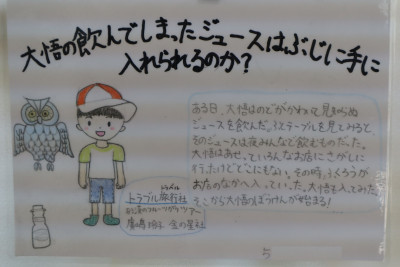 大悟の飲んでしまったジュースはぶじに手に
入れられるのか?
ある日、大悟はのどがかわいて見なれぬ
ジュースを飲んだ。ふとテーブルを見てみると、
そのジュースは夜みんなで飲むものだった。
大悟はあせっていろんなお店にさがしに
行ったけどどこにもない。その時、ふくろうが
お店のなかへ入っていった。大悟も入ってみた。
そこから大悟のぼうけんが始まる!
トラブル旅行社
トラベル
砂漠のフルーツガラツアー
廣嶋玲子 金の星社
5